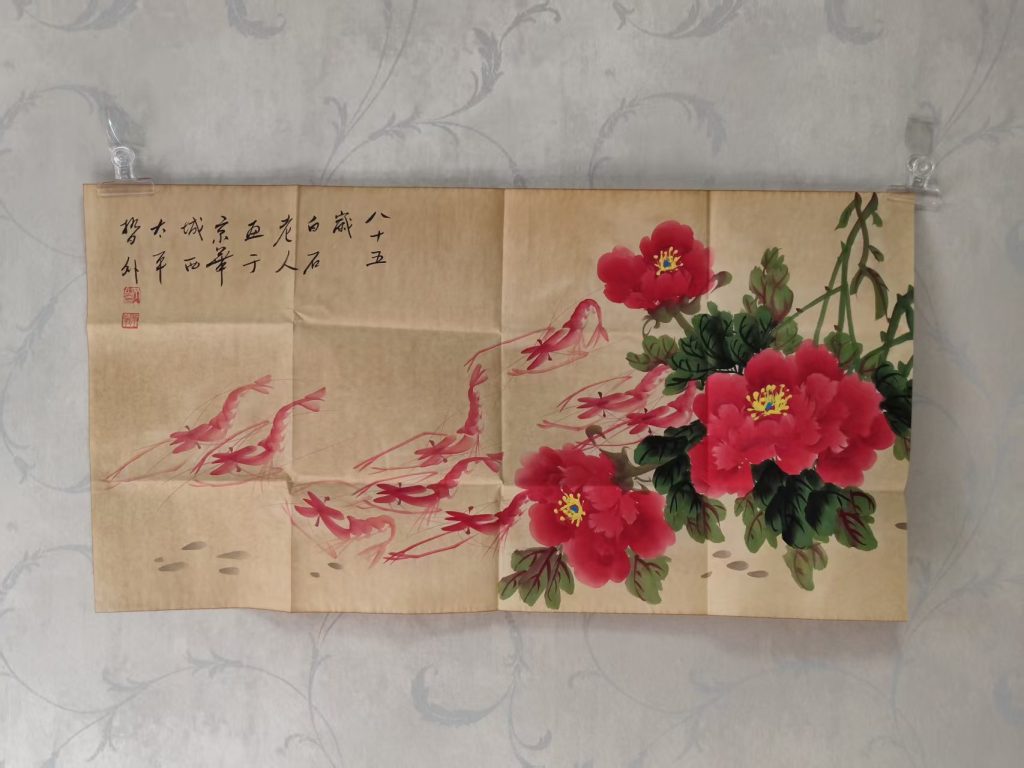 八十五
歲
白石
老人
画于
京華
城西
太平
外